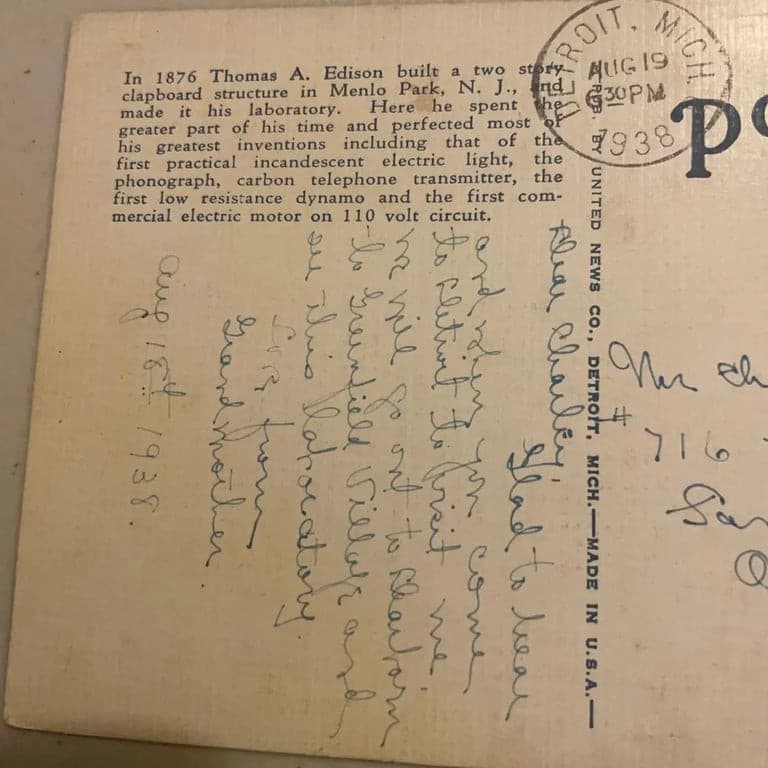 In 1876 Thomas A. Edison built a two story
clapboard structure in Menlo Park, N. J., and
made it his laboratory. Here he spent the
greater part of his time and perfected most of
his greatest inventions including that of the
first practical incandescent electric light, the
phonograph, carbon telephone transmitter, the
first low resistance dynamo and the first com-
mercial electric motor on 110 volt circuit.
DETROIT, MICH.
AUG 19
630 PM
1938
Po
PUB. BY UNITED NEWS CO., DETROIT, MICH.—MADE IN U.S.A.—
Dear Charley,
Glad to hear
and when you come
to Detroit to visit me
we will go out to Dearborn
to Greenfield Village and
see this laboratory.
from
Grandmother
Aug 18th 1938.
Mr Ch
# 716